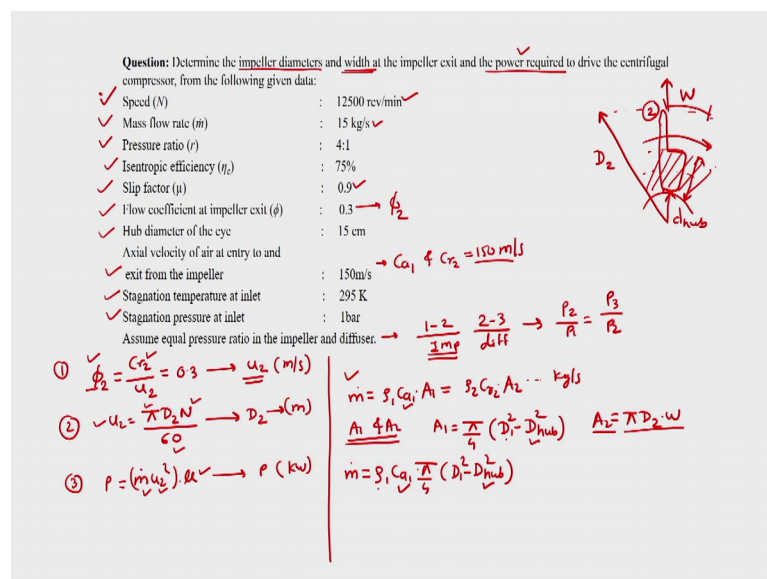 Question: Determine the impeller diameters and width at the impeller exit and the power required to drive the centrifugal
compressor, from the following given data:
Speed (N) : 12500 rev/min
Mass flow rate (ṁ) : 15 kg/s
Pressure ratio (r) : 4:1
Isentropic efficiency (ηc) : 75%
Slip factor (μ) : 0.9
Flow coefficient at impeller exit (ϕ) : 0.3 → ϕ2
Hub diameter of the eye : 15 cm
Axial velocity of air at entry to and
exit from the impeller : 150m/s → Ca1 & Cr2 = 150 m/s
Stagnation temperature at inlet : 295 K
Stagnation pressure at inlet : 1bar
Assume equal pressure ratio in the impeller and diffuser. → 1-2 / Imp 2-3 / diff → P2/P1 = P3/P2
2 W
D2
dhub
① ϕ2 = Cr2/u2 = 0.3 → u2 (m/s)
② u2 = πD2N/60 → D2 → (m)
③ P = (ṁu2²).μ → P (kW)
ṁ = ρ1 Ca1 A1 = ρ2 Cr2 A2 ... kg/s
A1 & A2 A1 = π/4 (D1² - Dhub²) A2 = πD2.W
ṁ = ρ1 Ca1 π/4 (D1² - Dhub²)